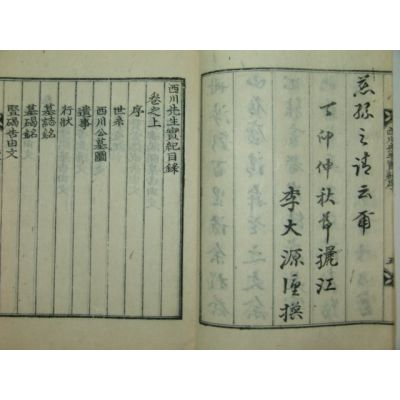 慈孫之請云爾
丁卯仲秋節驪江
李大源謹撰
西川先生實紀目錄
卷之上
序
世系
西川公墓圖
遺事
行狀
墓誌銘
墓碣銘
竪碣告由文